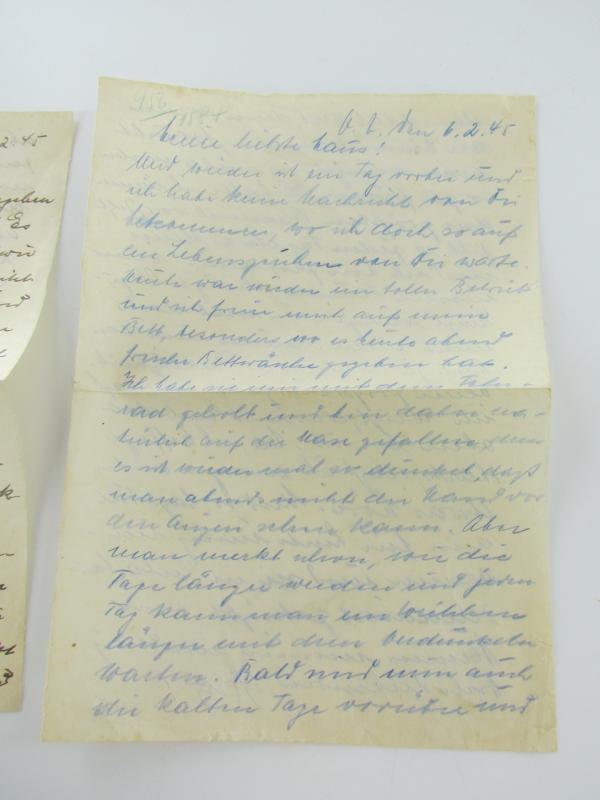 956/1588
O. U. den 6.2.45
Meine liebste Maus!
Und wieder ist ein Tag vorbei und
ich habe keine Nachricht von Dir
bekommen, wo ich doch so auf
ein Lebenszeichen von Dir warte.
Heute war wieder ein toller Betrieb
und ich freue mich auf mein
Bett, besonders wo es heute abend
frische Bettwäsche gegeben hat.
Ich habe sie mir mit dem Fahr-
rad geholt und bin dabei na-
türlich auf die Nase gefallen, denn
es ist wieder mal so dunkel, daß
man abends nicht die Hand vor
den Augen sehen kann. Aber
man merkt schon, wie die
Tage länger werden und jeden
Tag kann man ein bißchen
länger mit dem Verdunkeln
warten. Bald sind nun auch
die kalten Tage vorüber und
2.45
Es